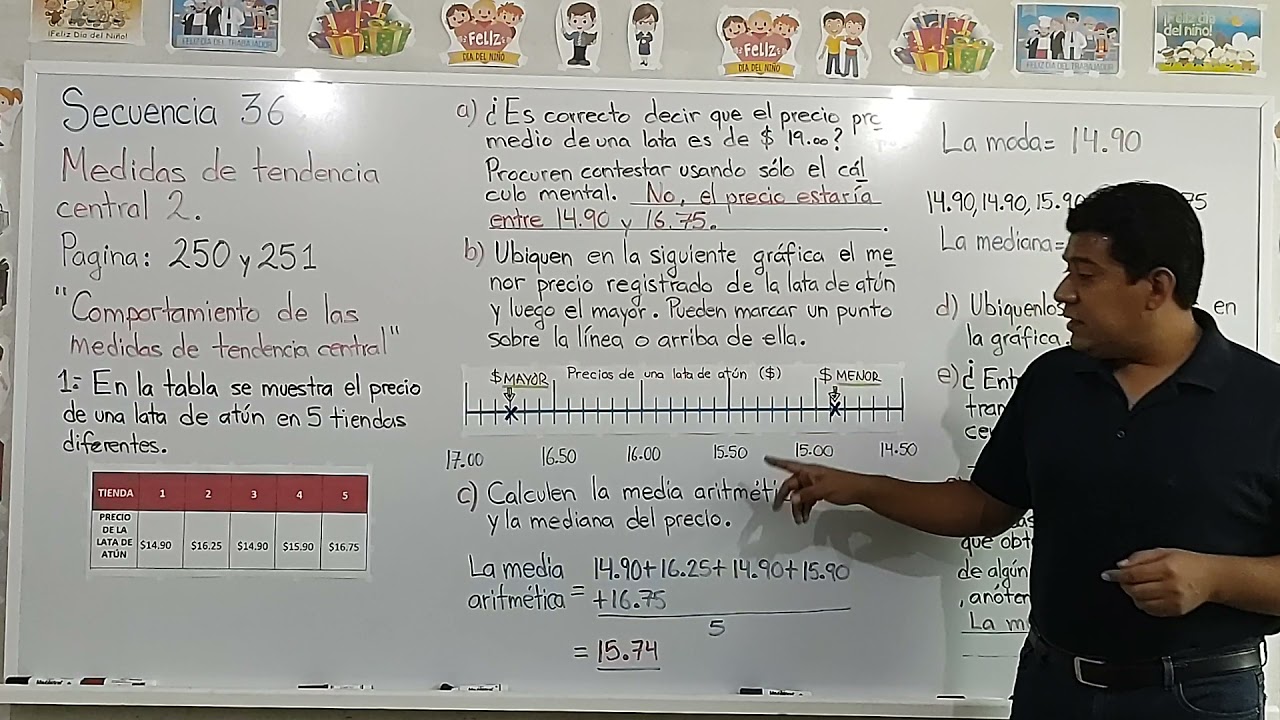 ¡Feliz Día del Niño!
FELIZ DÍA DEL TRABAJADOR
FELIZ
DIA DEL NIÑO
FELIZ
DIA DEL NIÑO
FELIZ DÍA DEL TRABAJADOR
¡Feliz día
del niño!
Secuencia 36
Medidas de tendencia
central 2.
Pagina: 250 y 251
"Comportamiento de las
medidas de tendencia central"
1= En la tabla se muestra el precio
de una lata de atún en 5 tiendas
diferentes.
TIENDA 1 2 3 4 5
PRECIO
DE LA
LATA DE
ATÚN
$14.90 $16.25 $14.90 $15.90 $16.75
a) ¿Es correcto decir que el precio pro
medio de una lata es de $ 19.00?
Procuren contestar usando sólo el cál
culo mental. No, el precio estaría
entre 14.90 y 16.75.
b) Ubiquen en la siguiente gráfica el me
nor precio registrado de la lata de atún
y luego el mayor. Pueden marcar un punto
sobre la línea o arriba de ella.
$ MAYOR Precios de una lata de atún ($) $ MENOR
17.00 16.50 16.00 15.50 15.00 14.50
c) Calculen la media
y la mediana del precio.
La media 14.90+16.25+14.90+15.90
aritmética = +16.75
5
= 15.74
La moda= 14.90
14.90, 14.90, 15.90
La mediana=
d) Ubiquenlos en
la gráfica.
e) ¿
que
de algún
La